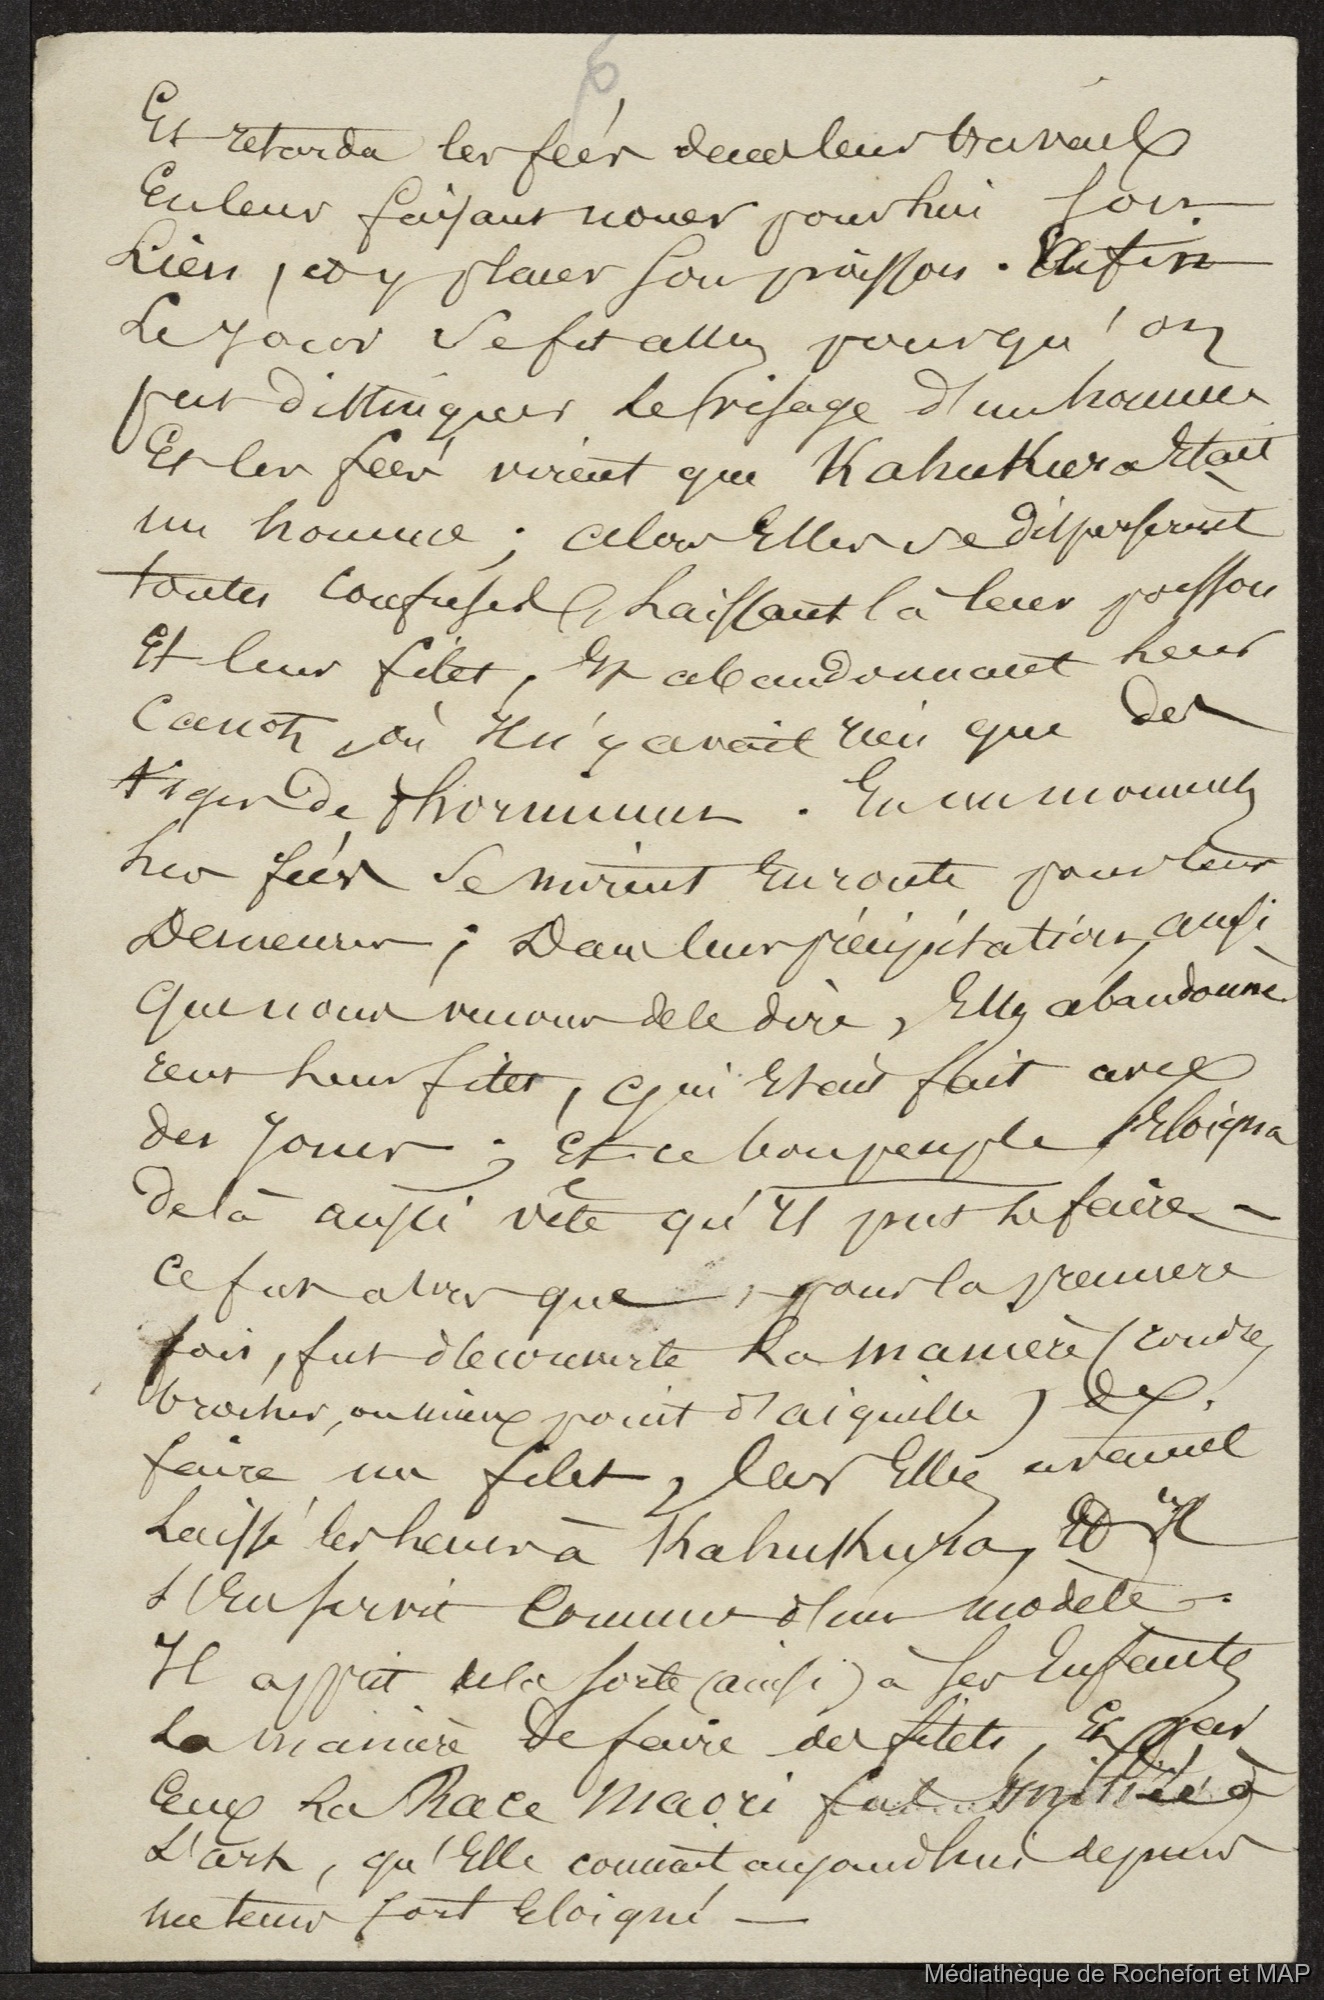 6
Et retarda les feés dans leur travail
En leur faisant nouer pour lui son
Lien, et y placer son poisson. Enfin
Le Jour se fit assez pour qu'on
put distinguer le visage d'un homme
Et les feés virent que KahuKura Etait
un homme ; alors Elles se disperserent
toutes confuses, Laissant là leur poisson
Et leur filet, Et abandonnant leurs
Canots, où Il n'y avait rien que des
tiges de Phormium. En un moment
les feés se mirent En route pour leurs
Demeures ; Dans leur précipitation, ainsi
que nous venons de le dire, Elles abandonnè
rent leur filet, qui Etait fait avec
des Joncs ; Et ce bon peuple s'Eloigna
de là aussi vite qu'Il put le faire -
Ce fut alors que, pour la premiere
fois, fut découverte La manière (coudre,
brocher, ou mieux point d'aiguille) de
faire un filet, Car Elles avaient
Laissé les leurs à KahuKura, Et Il
s'En servit Comme d'un modèle -
Il apprit de la sorte (ainsi) à ses Enfants
La manière De faire des filets, Et par
Eux La Race Maori fut initiée à
L'art, qu'Elle connait aujourd'hui depuis
un tems fort Eloigné —
Médiathèque de Rochefort et MAP